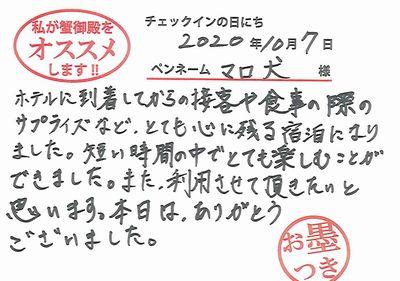 私が蟹御殿を
オススメ
します!!
チェックインの日にち
2020年10月7日
ペンネーム マロ犬 様
ホテルに到着してからの接客や食事の際の
サプライズなど、とても心に残る宿泊になり
ました。短い時間の中でとても楽しむことが
できました。また、利用させて頂きたいと
思います。本日は、ありがとう
ございました。
お墨
つき